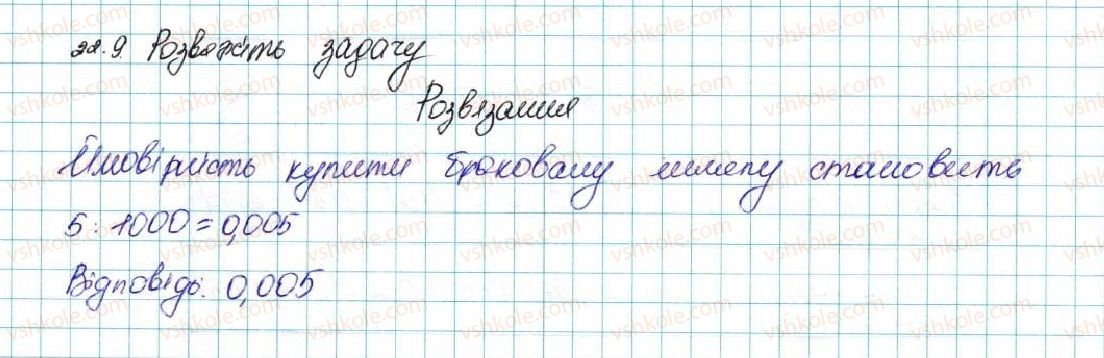 22.9. Розвяжіть задачу
Розвязання
Ймовірність купити браковану лампу становить
5 : 1000 = 0,005
Відповідь: 0,005